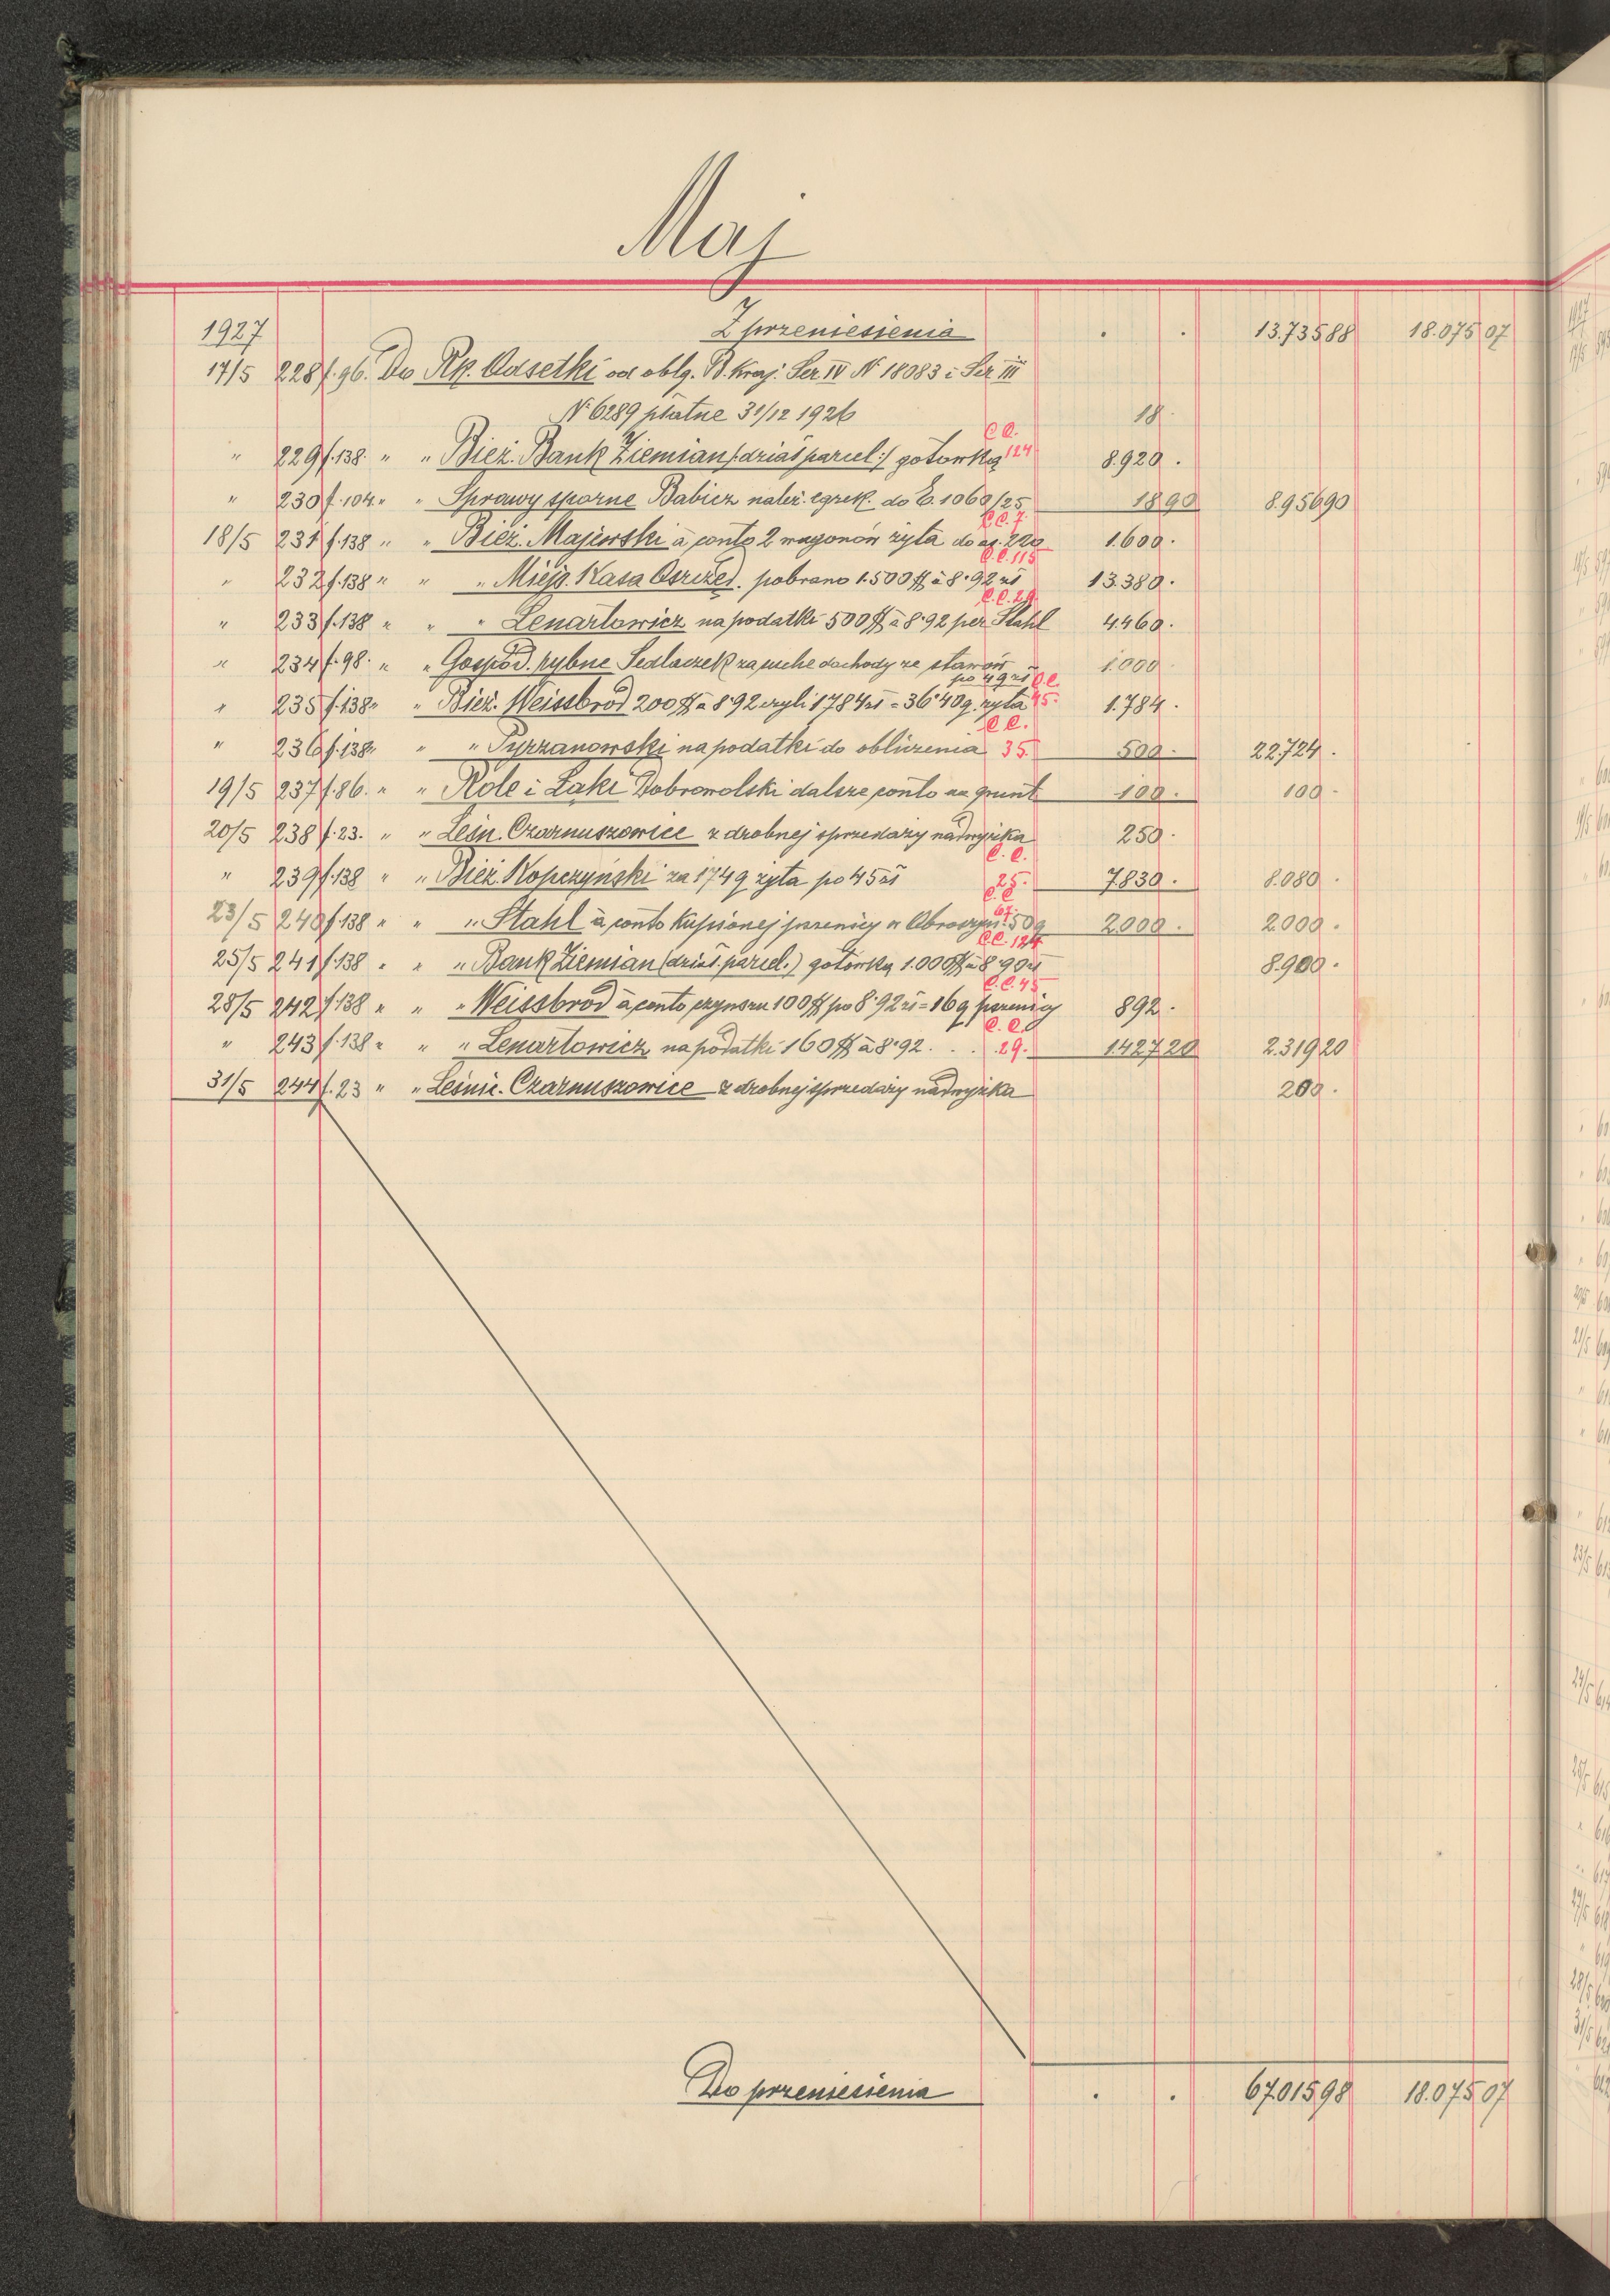 Maj
1927 Z przeniesienia . . 13.735 88 18.075 07
17/5 228 f. 96. Do Rp. Odsetki od oblg. B. Kraj. Ser. IV № 18083 i Ser. III
№ 6289 płatne 31/12 1926 18
" 229 f. 138. " " Bież. Bank Ziemian /:dział parcel:/ gotówką C.C. 124 8.920 .
" 230 f. 104. " " Sprawy sporne Babicz należ. egzek. do E. 1060/25 18 90 8.956 90
18/5 231 f. 138 " " Bież. Majewski à conto 2 wagonów żyta C.C. 7. 1.600 .
" 232 f. 138 " " " Miejs. Kasa Oszczęd. pobrano 1.500 $ à 8.92 zł C.C. 115 13.380 .
" 233 f. 138 " " " Lenartowicz na podatki 500 $ à 8.92 per Stahl C.C. 29. 4.460 .
" 234 f. 98. " " Gospod. rybne Sedlaczek za suche dochody ze stawów 1.000
" 235 f. 138 " " Bież. Weissbrod 200 $ à 8.92 czyli 1784 zł = 36.40 q. żyta po 49 zł C.C. 45. 1.784 .
" 236 f. 138 " " " Pyrzanowski na podatki do obliczenia C.C. 35. 500 . 22.724 .
19/5 237 f. 86. " " Role i Łąki Dobrowolski dalsze conto na grunt 100 . 100 .
20/5 238 f. 23. " " Leśn. Czarnuszowice z drobnej sprzedaży nadwyżka 250 .
" 239 f. 138 " " Bież. Kopczyński za 174 q żyta po 45 zł C.C. 25. 7.830 . 8.080 .
23/5 240 f. 138 " " " Stahl à conto kupionej pszenicy w Obroszyn. 50 q C.C. 67. 2.000 . 2.000 .
25/5 241 f. 138 " " " Bank Ziemian (dział. parcel.) gotówką 1.000 $ à 8.90 zł C.C. 124 8.900 .
28/5 242 f. 138 " " " Weissbrod à conto czynszu 100 $ po 8.92 zł = 16 q pszenicy C.C. 45 892 .
" 243 f. 138 " " " Lenartowicz na podatki 160 $ à 8.92 . . . C.C. 29. 1.427 20 2.319 20
31/5 244 f. 23 " " Leśnic. Czarnuszowice z drobnej sprzedaży nadwyżka 200 .
Do przeniesienia . . 67.015 98 18.075 07